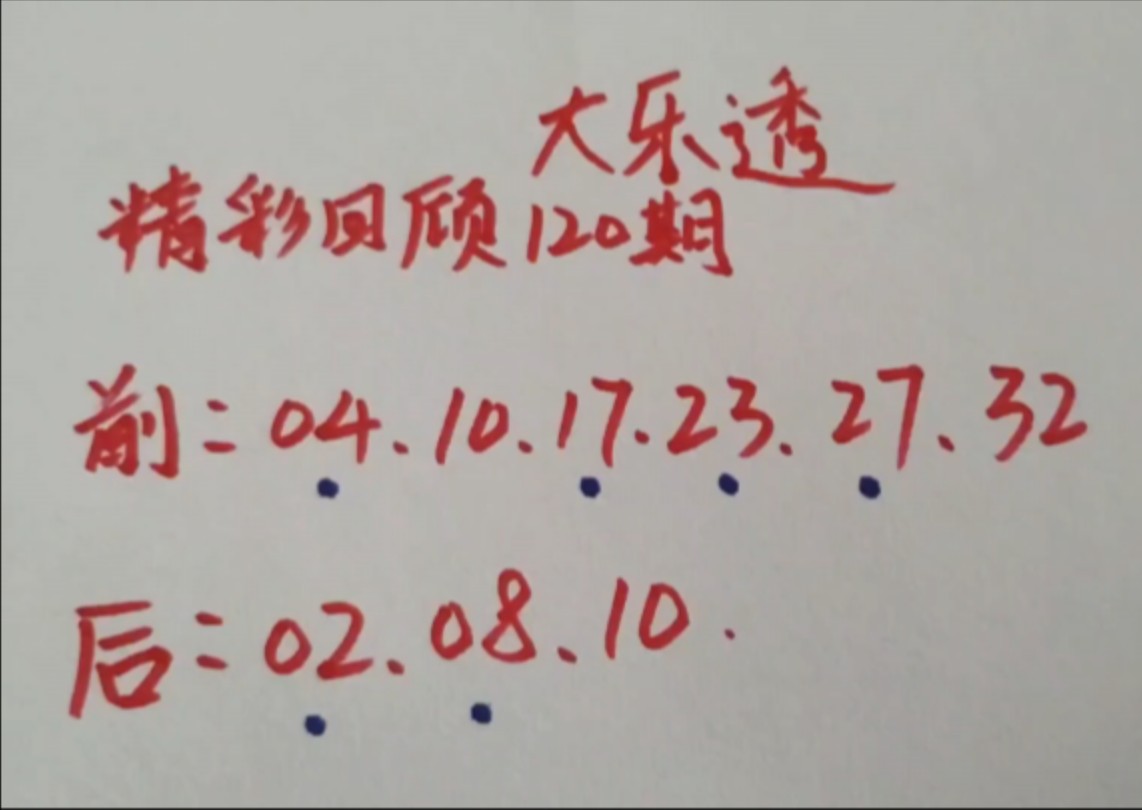 大乐透
精彩回顾120期
前:04.10.17.23.27.32
后:02.08.10.